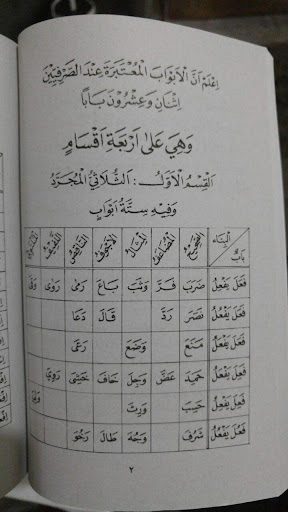 اِعْلَمْ اَنَّ الْاَبْوَابَ الْمُعْتَبَرَةَ عِنْدَ الصَّرْفِيِّيْنَ
اِثْنَانِ وَعِشْرُوْنَ بَابًا
وَهِيَ عَلَى اَرْبَعَةِ اَقْسَامٍ
اَلْقِسْمُ الْاَوَّلُ : اَلثُّلَاثِيُّ الْمُجَرَّدُ
وَفِيْهِ سِتَّةُ اَبْوَابٍ
اَلْبِنَاءُ بَابٌ الصَّحِيْحُ الْمُضَاعَفُ الْمِثَالُ الْاَجْوَفُ النَّاقِصُ اللَّفِيْفُ
فَعَلَ يَفْعِلُ ضَرَبَ فَرَّ وَثَبَ بَاعَ رَمَى رَوَى وَقَى
فَعَلَ يَفْعُلُ نَصَرَ رَدَّ قَالَ دَعَا
فَعَلَ يَفْعَلُ مَنَعَ وَضَعَ رَعَى
فَعِلَ يَفْعَلُ حَمِدَ عَضَّ وَجِلَ خَافَ خَشِيَ رَوِيَ
فَعِلَ يَفْعِلُ حَسِبَ وَرِثَ
فَعُلَ يَفْعُلُ شَرُفَ وَجُهَ طَالَ رَخُوَ
٢